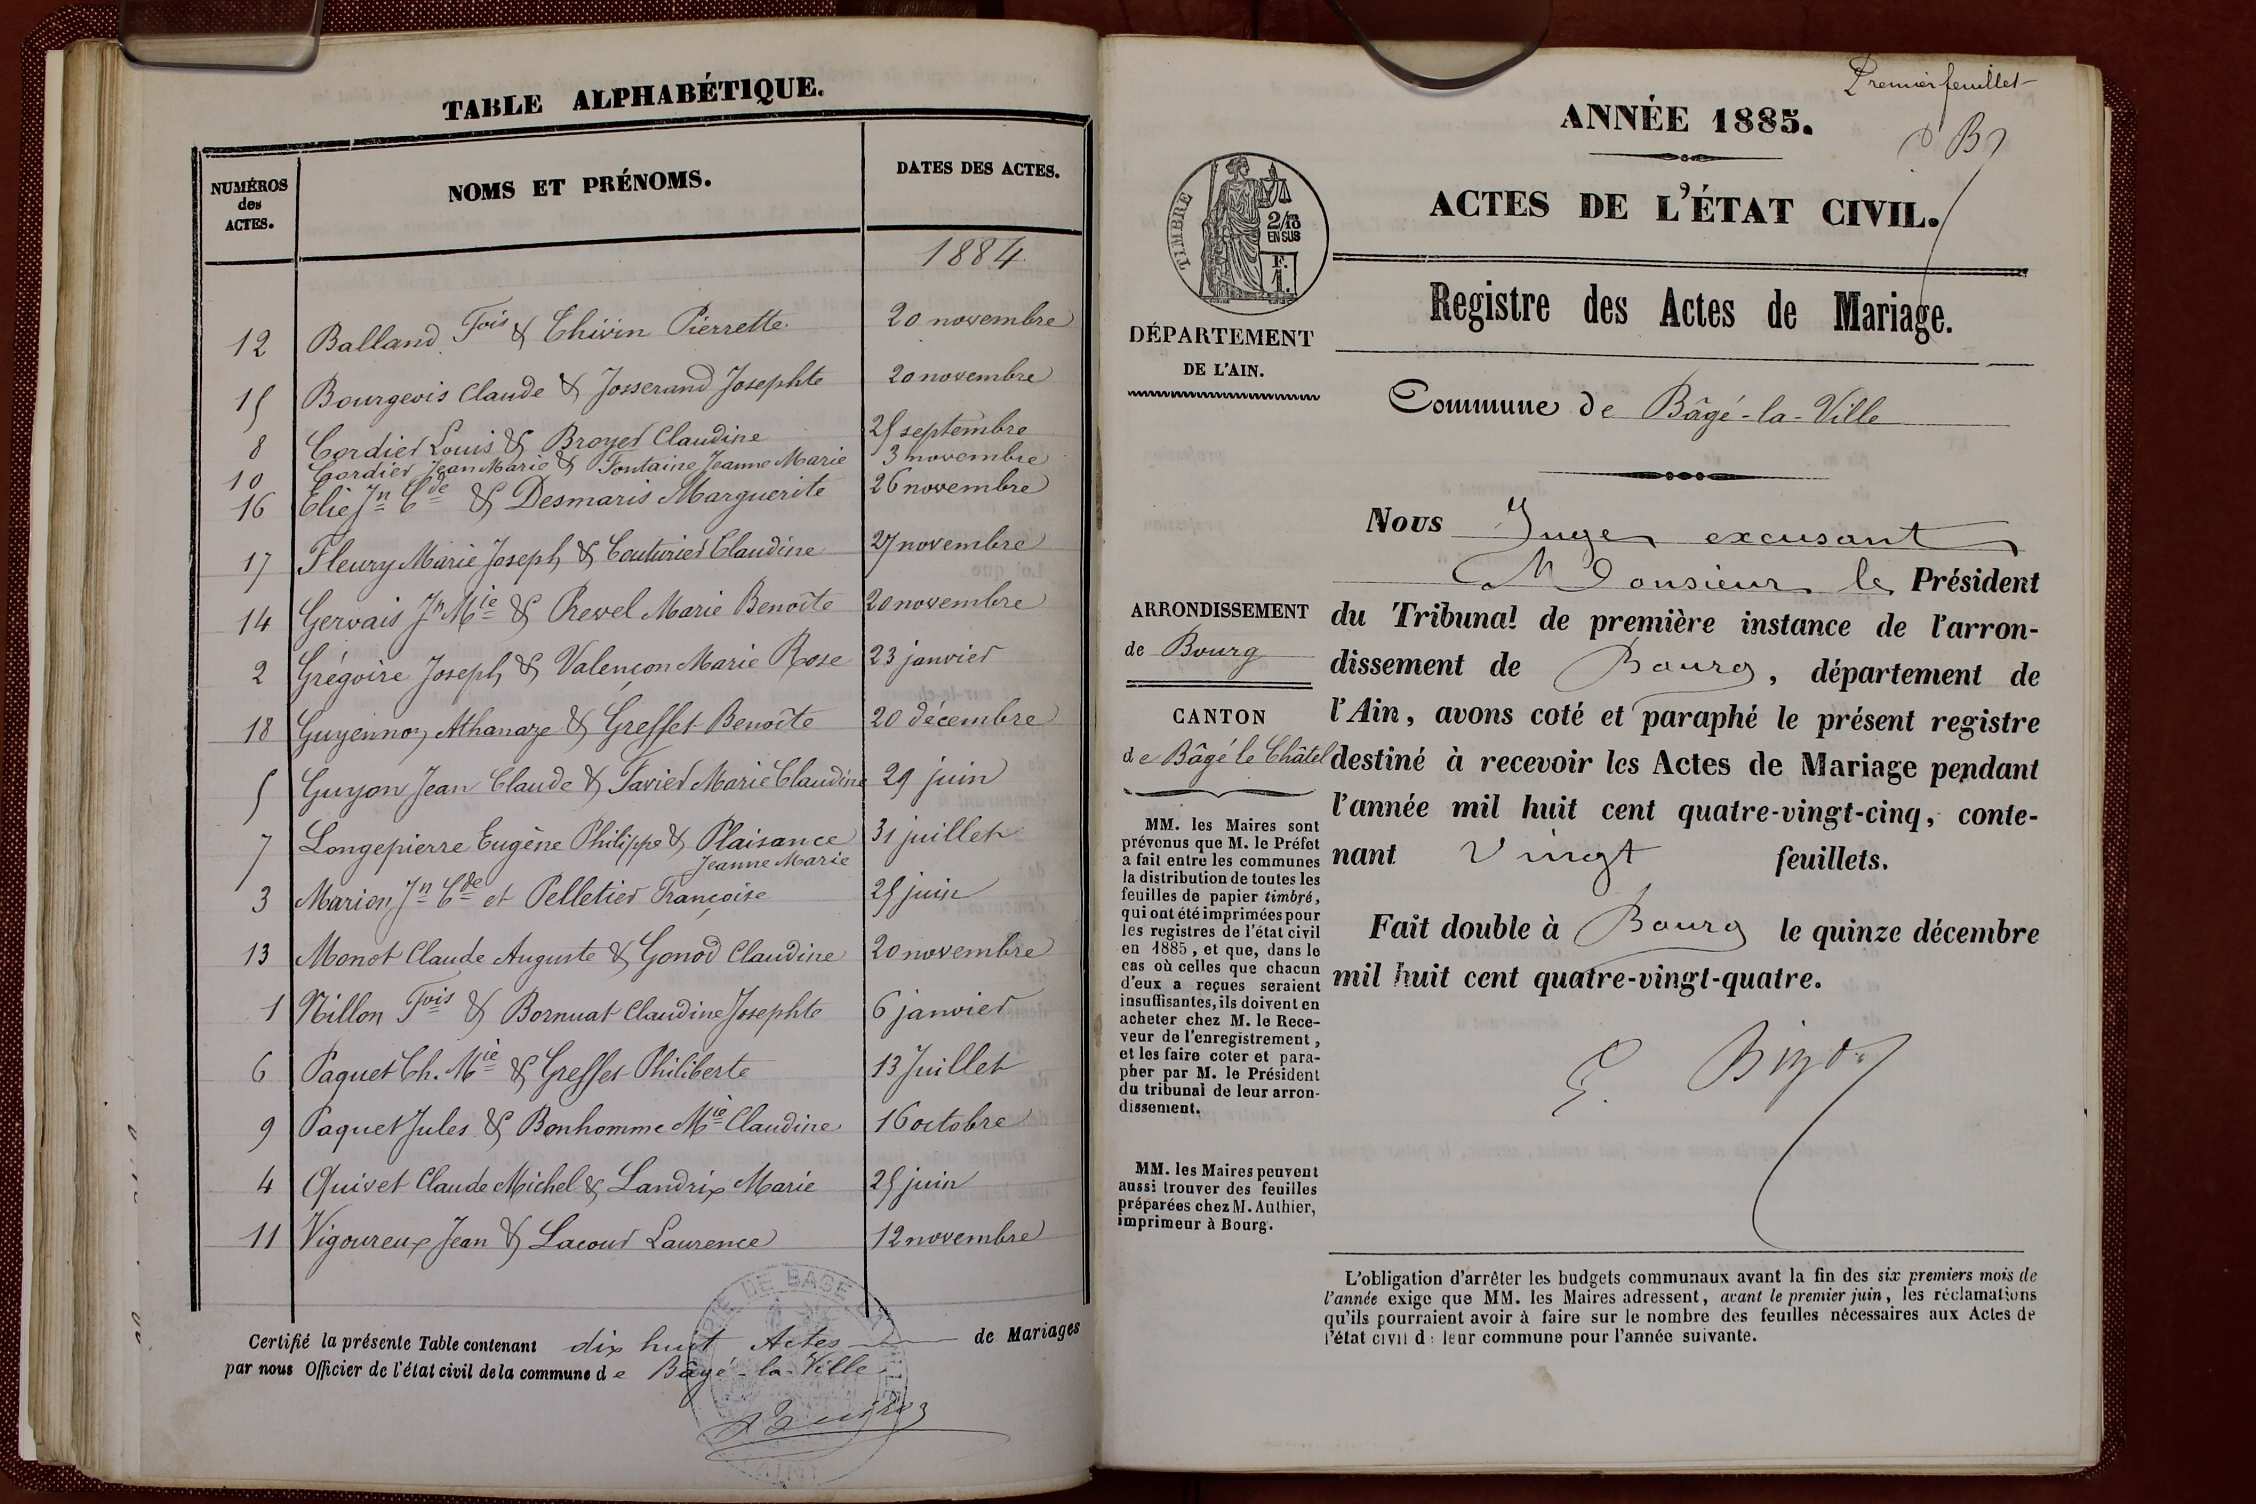 TABLE ALPHABÉTIQUE.
NUMÉROS
des
ACTES.
NOMS ET PRÉNOMS.
DATES DES ACTES.
1884
12 Balland Fois & Chivin Pierrette 20 novembre
15 Bourgeois Claude & Josserand Josephte 20 novembre
8 Cordier Louis & Broyer Claudine 25 septembre
10 Cordier Jean Marie & Fontaine Jeanne Marie 3 novembre
16 Elie Jn Cde & Desmaris Marguerite 26 novembre
17 Fleury Marie Joseph & Couturier Claudine 27 novembre
14 Gervais Jn Mie & Revel Marie Benoîte 20 novembre
2 Grégoire Joseph & Valençon Marie Rose 23 janvier
18 Guyennon Athanaze & Greffet Benoîte 20 décembre
5 Guyon Jean Claude & Favier Marie Claudine 29 juin
7 Longepierre Eugène Philippe & Plaisance 31 juillet
Jeanne Marie
3 Marion Jn Cde et Pelletier Françoise 25 juin
13 Monot Claude Auguste & Gonod Claudine 20 novembre
1 Nillon Fois & Bornuat Claudine Josephte 6 janvier
6 Paquet Ch. Mie & Greffet Philiberte 13 Juillet
9 Paquet Jules & Bonhomme Mie Claudine 16 octobre
4 Quivet Claude Michel & Landrix Marie 25 juin
11 Vigoureux Jean & Lacour Laurence 12 novembre
Certifié la présente Table contenant dix huit Actes de Mariages
par nous Officier de l'état civil de la commune de Bâgé-la-Ville
Premier feuillet
ANNÉE 1885.
ACTES DE L'ÉTAT CIVIL.
TIMBRE
2/10
EN SUS
F.
1.
Registre des Actes de Mariage.
DÉPARTEMENT
DE L'AIN.
Commune de Bâgé-la-Ville
Nous Juge excusant
Monsieur le Président
du Tribunal de première instance de l'arron-
dissement de Bourg, département de
l'Ain, avons coté et paraphé le présent registre
destiné à recevoir les Actes de Mariage pendant
l'année mil huit cent quatre-vingt-cinq, conte-
nant Vingt feuillets.
Fait double à Bourg le quinze décembre
mil huit cent quatre-vingt-quatre.
ARRONDISSEMENT
de Bourg
CANTON
de Bâgé le Châtel
MM. les Maires sont
prévenus que M. le Préfet
a fait entre les communes
la distribution de toutes les
feuilles de papier timbré,
qui ont été imprimées pour
les registres de l'état civil
en 1885, et que, dans le
cas où celles que chacun
d'eux a reçues seraient
insuffisantes, ils doivent en
acheter chez M. le Rece-
veur de l'enregistrement,
et les faire coter et para-
pher par M. le Président
du tribunal de leur arron-
dissement.
MM. les Maires peuvent
aussi trouver des feuilles
préparées chez M. Authier,
imprimeur à Bourg.
L'obligation d'arrêter les budgets communaux avant la fin des six premiers mois de
l'année exige que MM. les Maires adressent, avant le premier juin, les réclamations
qu'ils pourraient avoir à faire sur le nombre des feuilles nécessaires aux Actes de
l'état civil de leur commune pour l'année suivante.